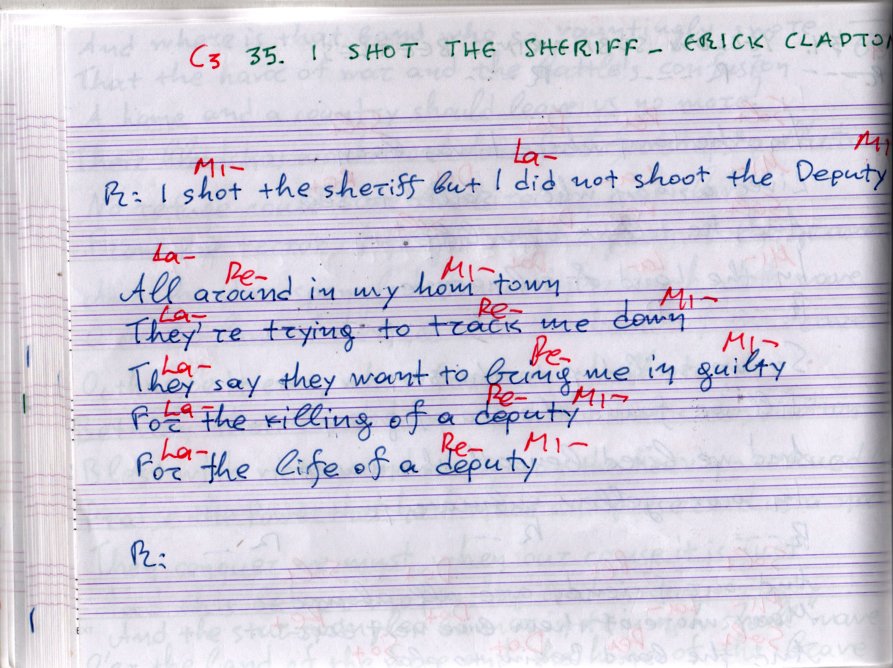 C3 35. I SHOT THE SHERIFF_ ERICK CLAPTON
MI- La- MI
R: I shot the sheriff but I did not shoot the Deputy
La- Re- MI-
All around in my hom town
La- Re- MI-
They're trying to track me down
La- Re- MI-
They say they want to bring me in guilty
La- Re- MI-
For the killing of a deputy
La- Re- MI-
For the life of a deputy
R: